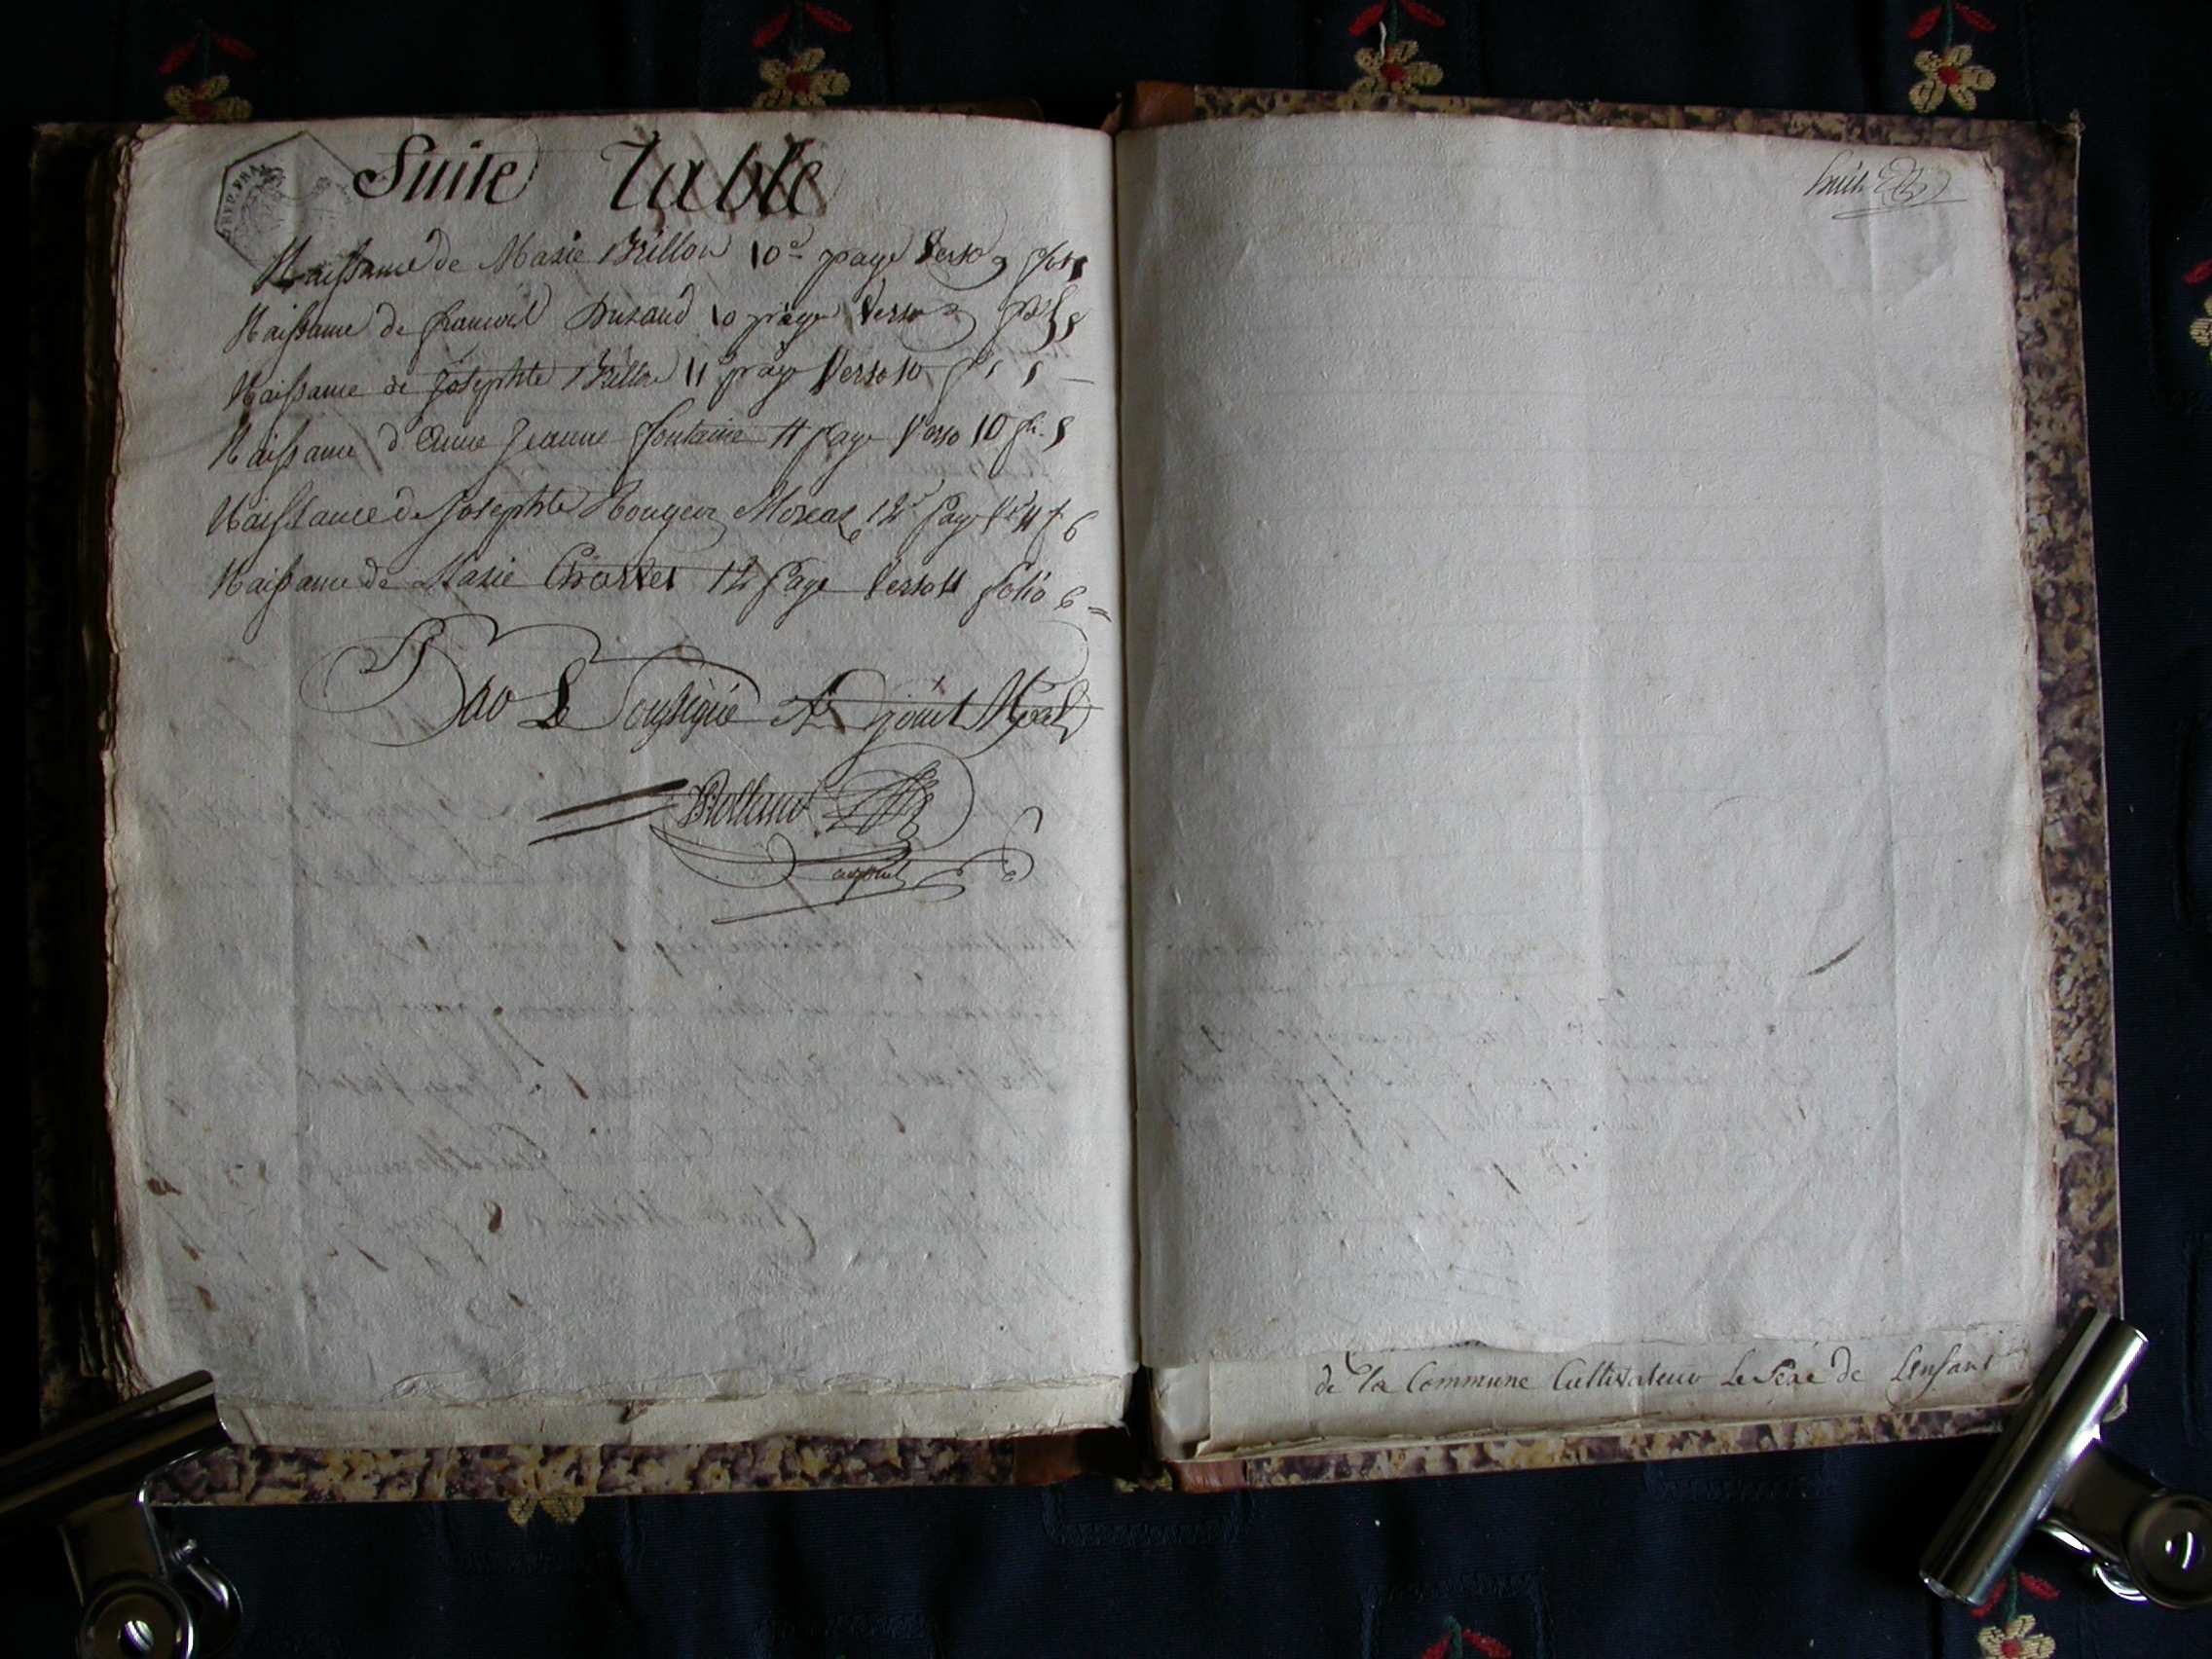 REP. FRA
Suite Table
Naissance de Marie Brillon 10e page Verso 9 fol 5
Naissance de francois Durand 10 page Verso 9 5
Naissance de Josephte Brillon 11 page Verso 10 5
Naissance d'Anne Jeanne fontaine 11 page Verso 10 fo. 5
Naissance de Josephte Rougeur Moreal 12e page 11 f 6
Naissance de Marie Charlet 12 page Verso 11 folio 6
Par Le Sousigné Adjoint
Rolland
adjoint
huit
de la Commune Cultivateur Le Pere de Lenfant